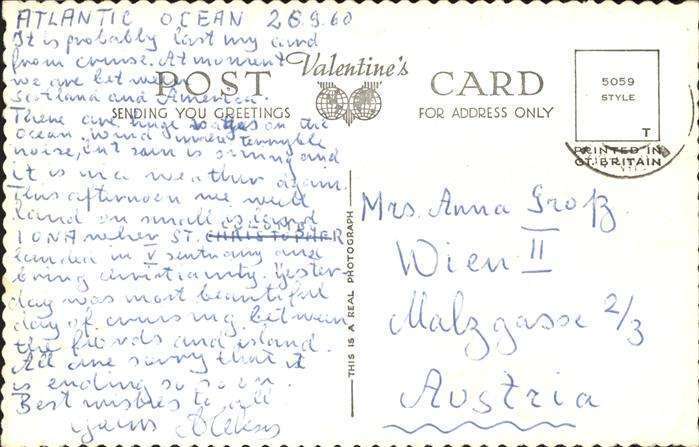 ATLANTIC OCEAN 26.9.60
It is probably last my card
from cruise. At moment
we are between
Scotland and America.
There are huge on the
Ocean. Wind terryble
noise, but sun is and
it is nice weather again.
This afternoon we will
land on small island
IONA where ST. CHRISTOPHER
landed in V sentuary and
bring christianity. Yester-
day was most beautiful
day of cruising between
the fiords and island.
All are sorry that it
is ending so soon.
Best wishes to all
yours
POST CARD
Valentine's
SENDING YOU GREETINGS
FOR ADDRESS ONLY
5059
STYLE
T
PRINTED IN
GT. BRITAIN
THIS IS A REAL PHOTOGRAPH
Mrs. Anna Groß
Wien II
Malzgasse 2/3
Austria